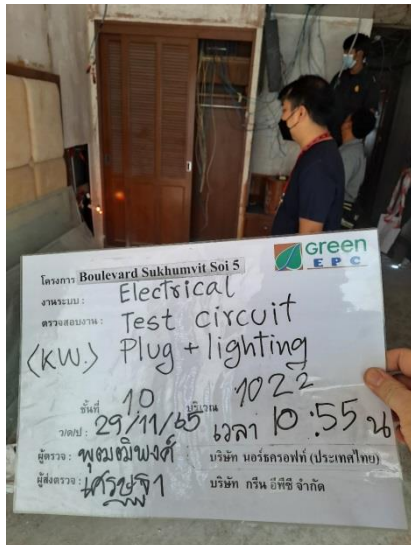 Green
EPC
โครงการ Boulevard Sukhumvit Soi 5
งานระบบ : Electrical
ตรวจสอบงาน : Test circuit
(KW.) Plug + lighting
ชั้นที่ 10 บริเวณ 1022
ว/ด/ป : 29/11/65 เวลา 10:55 น
ผู้ตรวจ : พุฒิพงศ์ บริษัท นอร์ธครอฟท์ (ประเทศไทย)
ผู้ส่งตรวจ : เศรษฐา บริษัท กรีน อีพีซี จำกัด